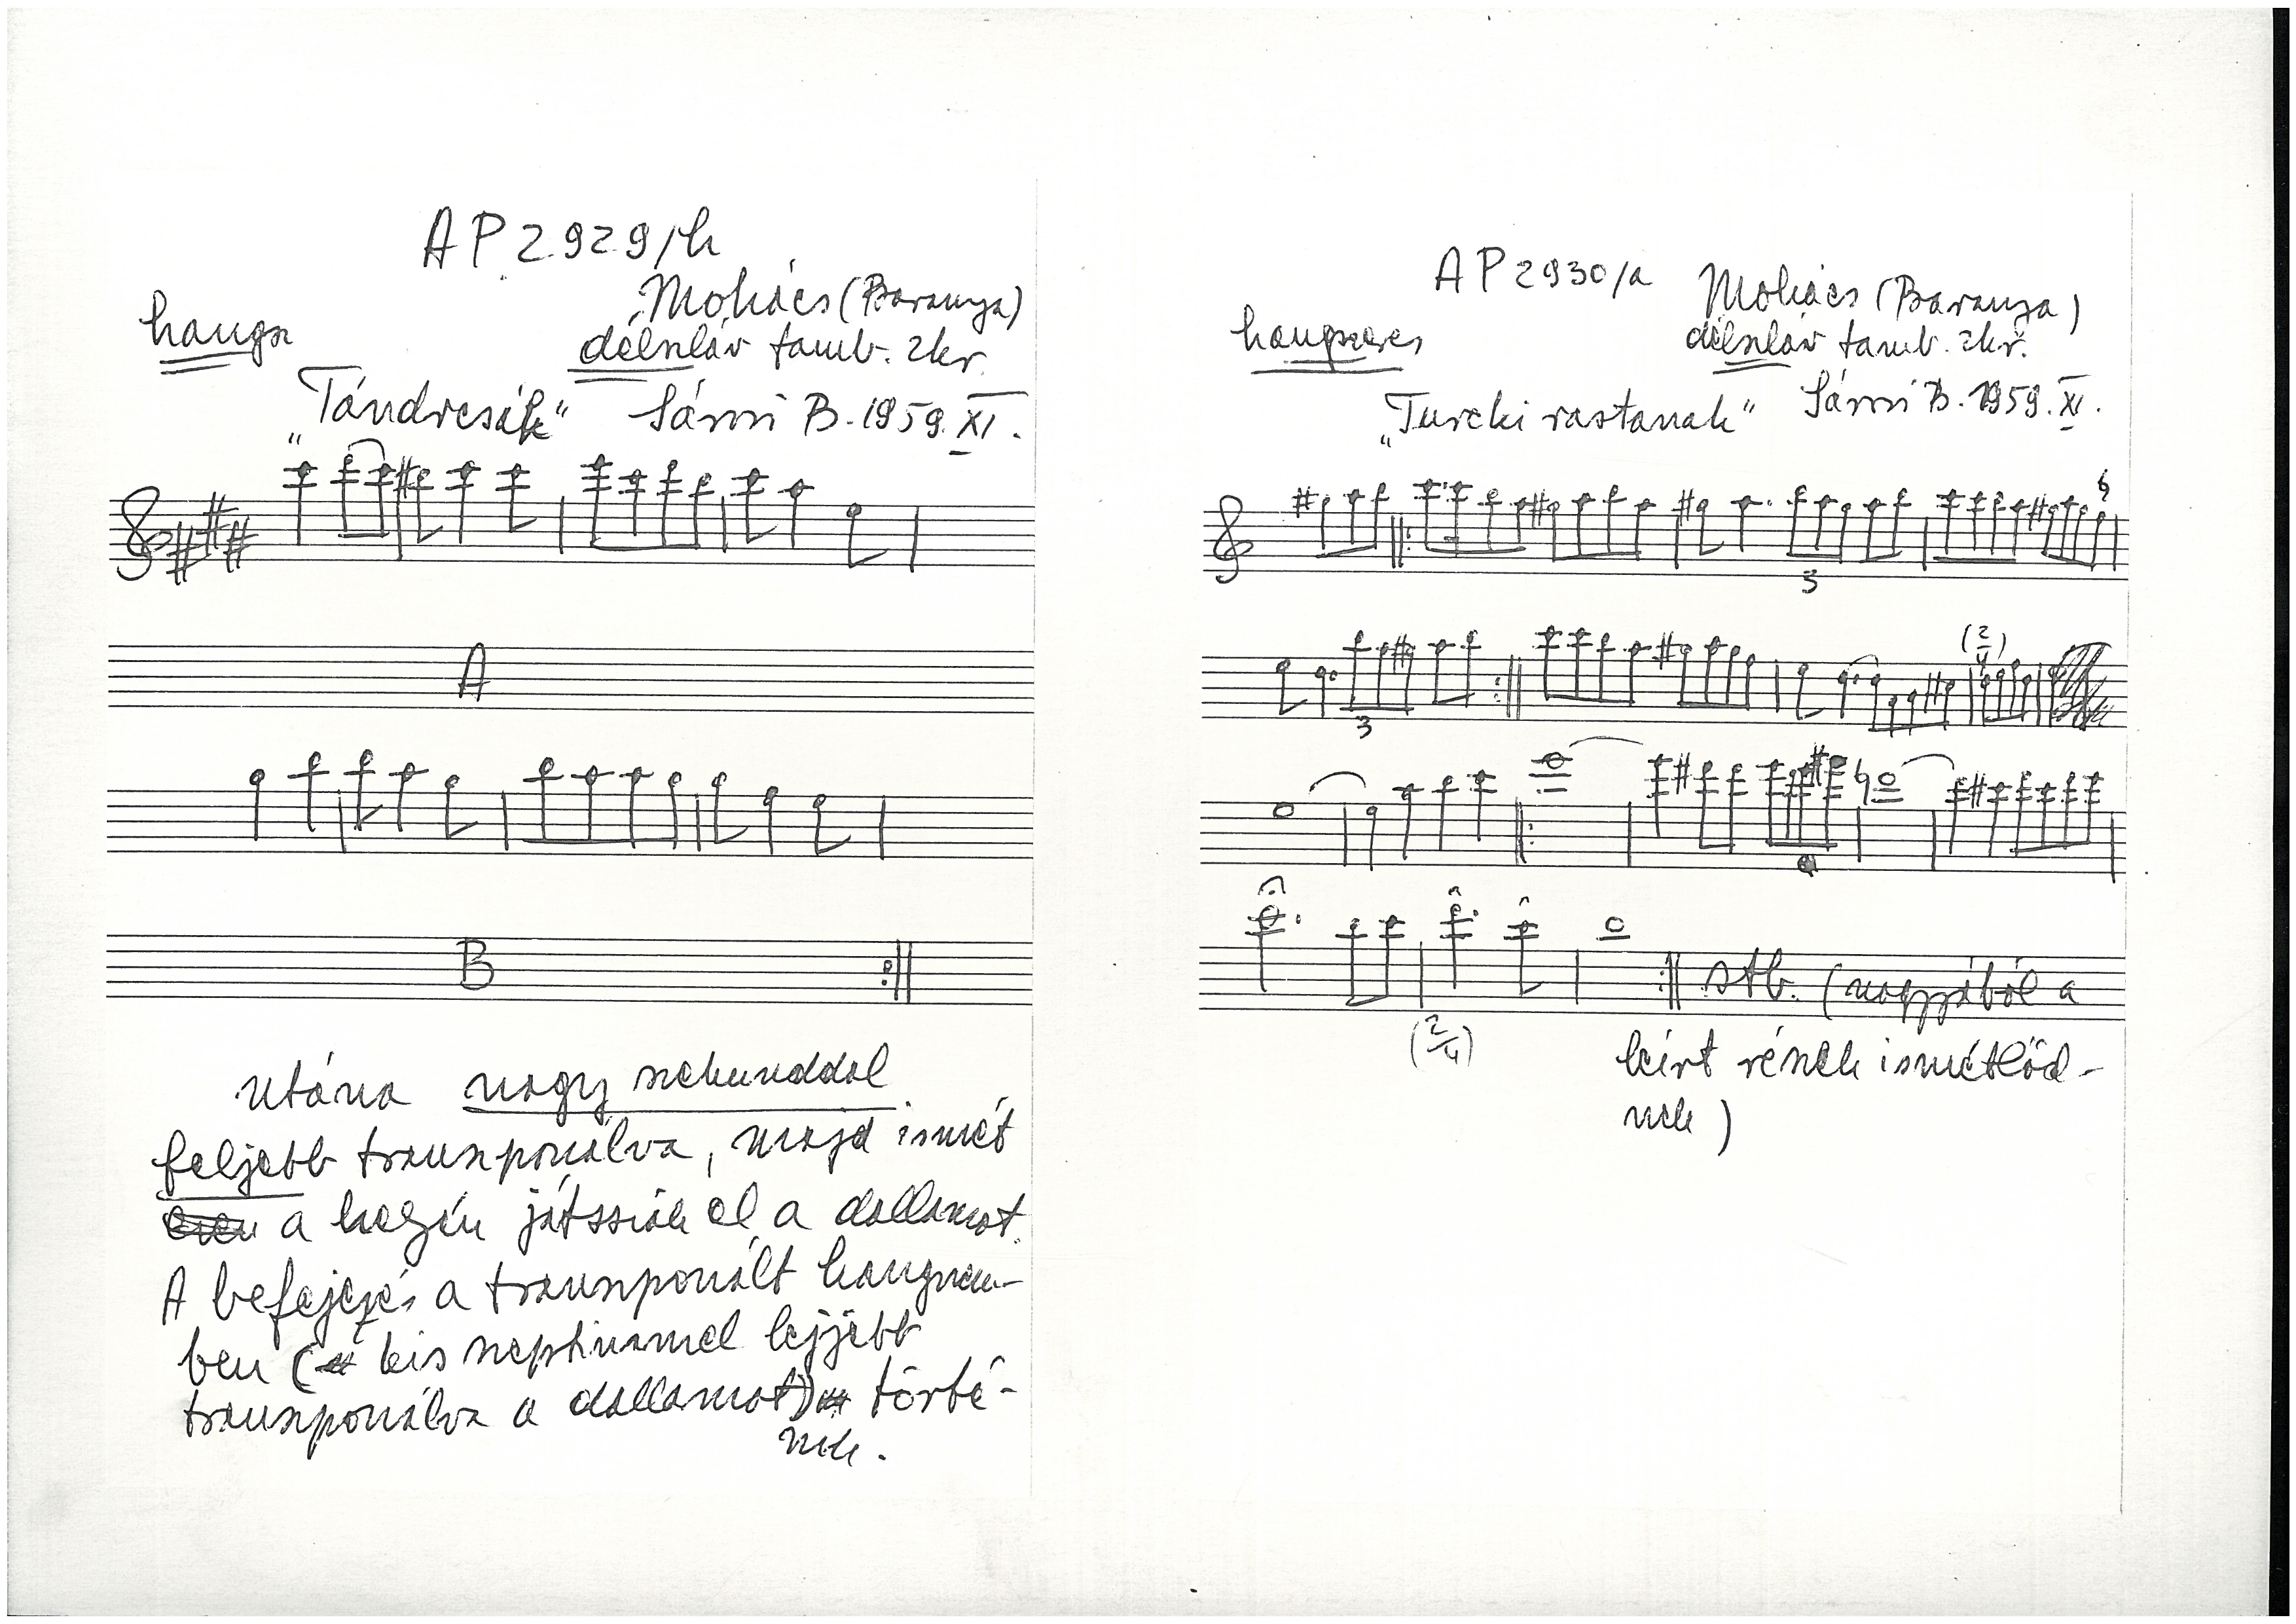 AP 2929/h
Mohács (Baranya)
hangsz
délszláv tamb. zkr.
„Tándrcsák" Sárosi B. 1959. XI.
A
B
utána nagy szekunddal
feljebb transzponálva, majd ismét
a helyén játsszák el a dallamot.
A befejezés a transzponált hangnem-
ben (kis szeptimmel lejjebb
transzponálva a dallamot) törté-
nik.
AP 2930/a Mohács (Baranya)
hangszeres
délszláv tamb. zkr.
„Turcki rastanak" Sárosi B. 1959. XI.
3
3
(2/4)
(2/4)
stb. (nagyjából a
leírt részek ismétlőd-
nek)